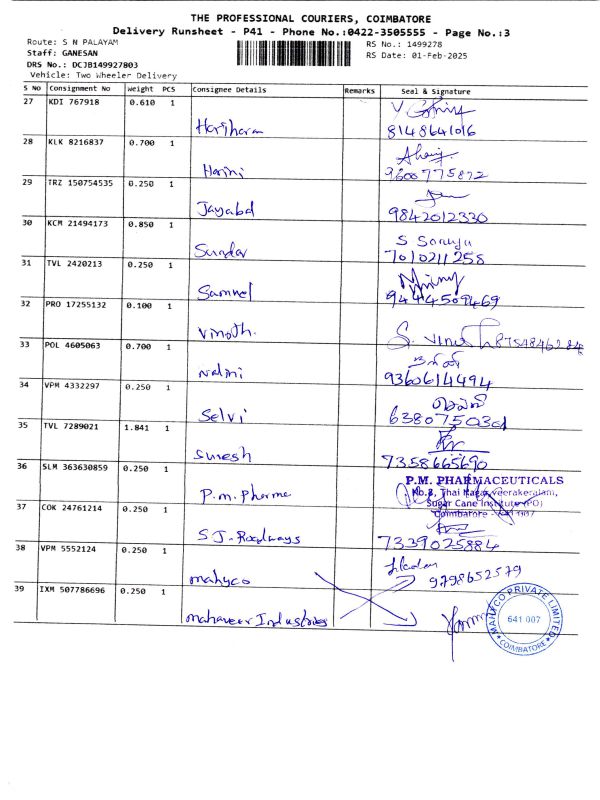 THE PROFESSIONAL COURIERS, COIMBATORE
Delivery Runsheet - P41 - Phone No.:0422-3505555 - Page No.:3
Route: S N PALAYAM RS No.: 1499278
Staff: GANESAN RS Date: 01-Feb-2025
DRS No.: DCJB149927803
Vehicle: Two Wheeler Delivery
S No Consignment No Weight PCS Consignee Details Remarks Seal & Signature
27 KDI 767918 0.610 1
Hariharan 8148641016
28 KLK 8216837 0.700 1
Harini 9600775872
29 TRZ 150754535 0.250 1
Jayabal 9842012330
30 KCM 21494173 0.850 1 S Saranya
Sundar 7010211258
31 TVL 2420213 0.250 1
Samuel 9444509469
32 PRO 17255132 0.100 1
Vinoth. S. Vinoth 8754846284
33 POL 4605063 0.700 1 நளினி
Nalini 9360614494
34 VPM 4332297 0.250 1 செல்வி
Selvi 6380750301
35 TVL 7289021 1.841 1
Suresh 7358665690
36 SLM 363630859 0.250 1 P.M. PHARMACEUTICALS
P.m. Pharma No.8, Thai Nagar, Veerakeralam,
Sugar Cane Institute (PO)
Coimbatore - 641 007
37 COK 24761214 0.250 1
SJ. Roadways 7339025884
38 VPM 5552124 0.250 1
mahyco 9798652579
39 IXM 507786696 0.250 1
mahaveer Industries
MAHYCO PRIVATE LIMITED
641 007
COIMBATORE